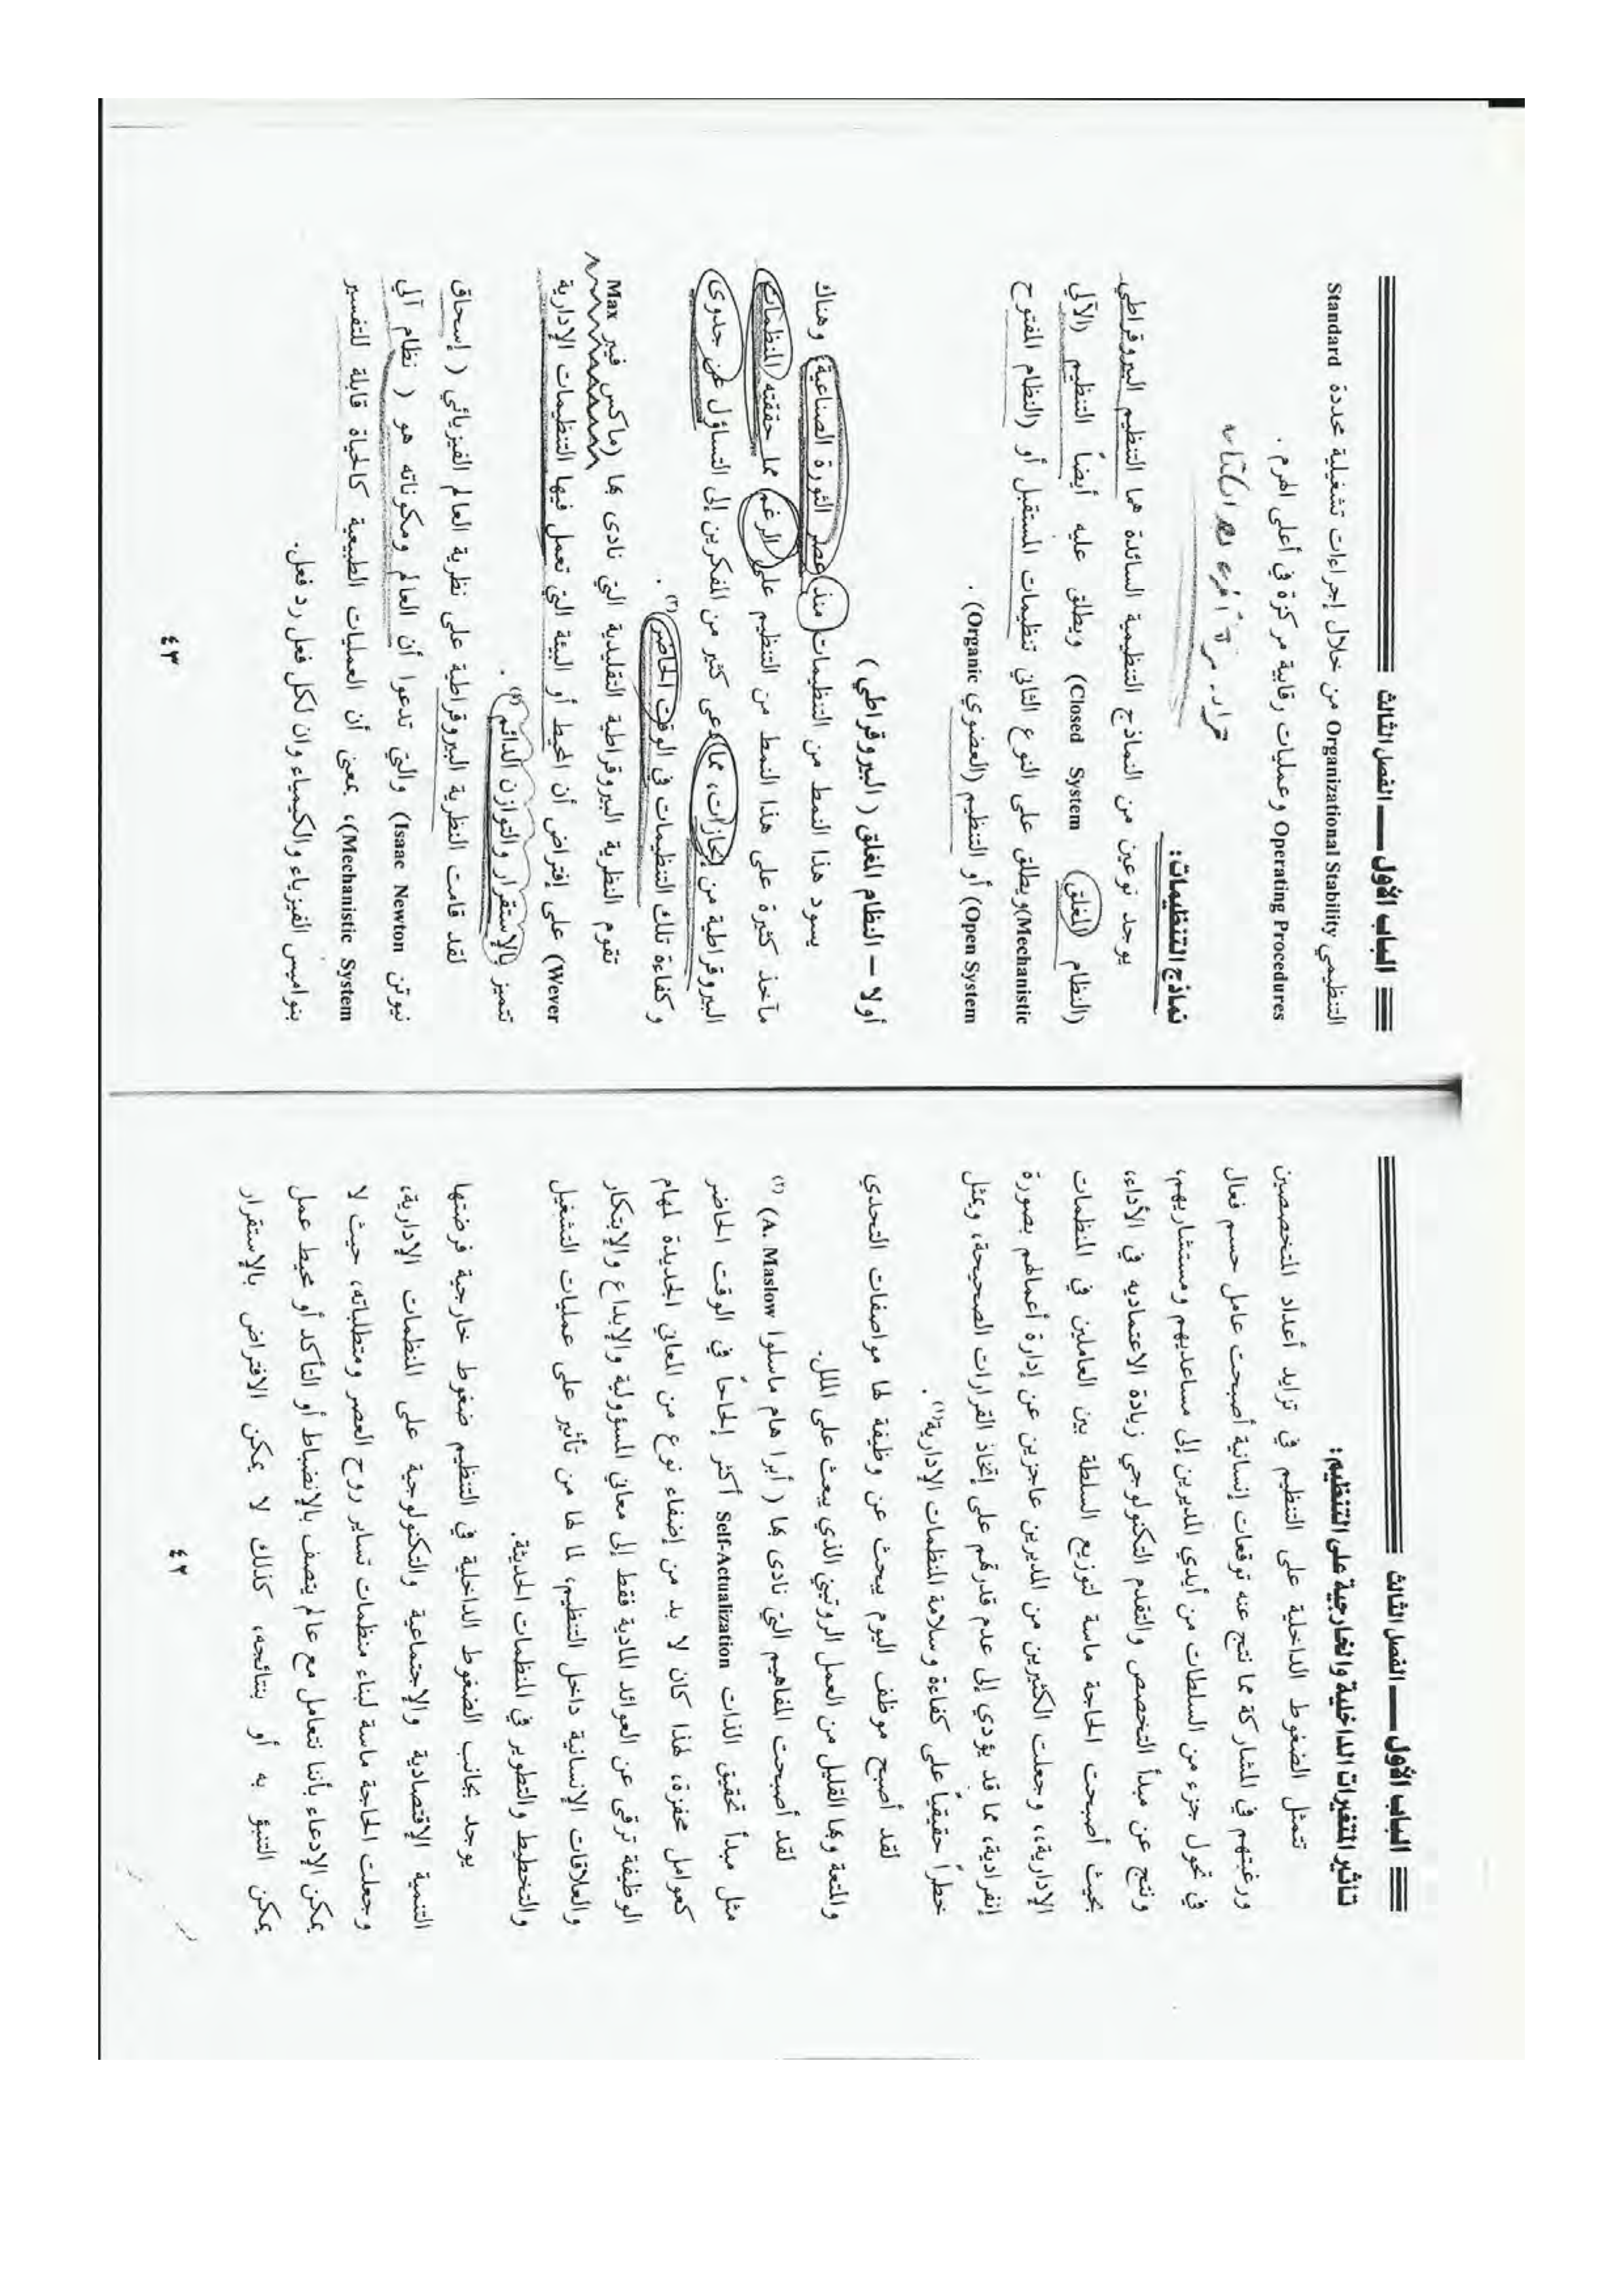 الباب الأول — الفصل الثالث
تأثير المتغيرات الداخلية والخارجية على التنظيم:
تتمثل الضغوط الداخلية على التنظيم في تزايد أعداد المتخصصين
ورغبتهم في المشاركة مما نتج عنه توقعات إنسانية أصبحت عامل حسم فعال
في تحول جزء من السلطات من أيدي المديرين إلى مساعديهم ومستشاريهم،
ونتج عن مبدأ التخصص والتقدم التكنولوجي زيادة الاعتماديه في الأداء،
بحيث أصبحت الحاجة ماسة لتوزيع السلطة بين العاملين في المنظمات
الإدارية،، وجعلت الكثيرين من المديرين عاجزين عن إدارة أعمالهم بصورة
إنفرادية، مما قد يؤدي إلى عدم قدرتهم على إتخاذ القرارات الصحيحة، ويمثل
خطراً حقيقياً على كفاءة وسلامة المنظمات الإدارية(١).
لقد أصبح موظف اليوم يبحث عن وظيفة لها مواصفات التحدي
والمتعة وبها القليل من العمل الروتيني الذي يبعث على الملل.
لقد أصبحت المفاهيم التي نادى بها ( أبرا هام ماسلوا A. Maslow) (٢)
مثل مبدأ تحقيق الذات Self-Actualization أكثر إلحاحاً في الوقت الحاضر
كعوامل محفزة، لهذا كان لا بد من إضفاء نوع من المعاني الجديدة لمهام
الوظيفة ترقى عن العوائد المادية فقط إلى معاني المسؤولية والإبداع والإبتكار
والعلاقات الإنسانية داخل التنظيم، لما لها من تأثير على عمليات التشغيل
والتخطيط والتطوير في المنظمات الحديثة.
يوجد بجانب الضغوط الداخلية في التنظيم ضغوط خارجية فرضتها
التنمية الإقتصادية والإجتماعية والتكنولوجية على المنظمات الإدارية،
وجعلت الحاجة ماسة لبناء منظمات تساير روح العصر ومتطلباته، حيث لا
يمكن الإدعاء بأننا نتعامل مع عالم يتصف بالإنضباط أو التأكد أو محيط عمل
يمكن التنبؤ به أو بنتائجه، كذلك لا يمكن الافتراض بالإستقرار
٤٢
الباب الأول — الفصل الثالث
التنظيمي Organizational Stability من خلال إجراءات تشغيلية محددة Standard
Operating Procedures وعمليات رقابية مركزة في أعلى الهرم .
نماذج التنظيمات:
يوجد نوعين من النماذج التنظيمية السائدة هما التنظيم البيروقراطي
(النظام المغلق) (Closed System ويطلق عليه أيضاً التنظيم (الآلي
Mechanistic)ويطلق على النوع الثاني تنظيمات المستقبل أو (النظام المفتوح
Open System) أو التنظيم (العضوي Organic) .
أولا – النظام المغلق ( البيروقراطي )
يسود هذا النمط من التنظيمات منذ عصر الثورة الصناعية، وهناك
مآخذ كثيرة على هذا النمط من التنظيم على الرغم مما حققته المنظمات
البيروقراطية من إنجازات، مما دعى كثير من المفكرين إلى التساؤل عن جدوى
وكفاءة تلك التنظيمات في الوقت الحاضر(٣) .
تقوم النظرية البيروقراطية التقليدية التي نادى بها (ماكس فيبر Max
Wever) على إفتراض أن المحيط أو البيئة التي تعمل فيها التنظيمات الإدارية
تتميز بالإستقرار والتوازن الدائم(٤) .
لقد قامت النظرية البيروقراطية على نظرية العالم الفيزيائي ( إسحاق
نيوتن Isaac Newton) والتي تدعوا أن العالم ومكوناته هو ( نظام آلي
Mechanistic System)، بمعنى أن العمليات الطبيعية كالحياة قابلة للتفسير
بنواميس الفيزياء والكيمياء وان لكل فعل رد فعل.
٤٣